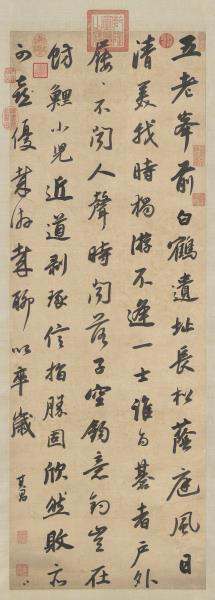 五老峯前白鶴遺址長松蔭庭風日
清美我時獨游不逢一士誰與棊者戶外
屨二不聞人聲時聞落子空鉤意釣豈在
魴鯉小兒近道剥琢信指勝固欣然敗亦
可喜優哉游哉聊以卒歲 其昌